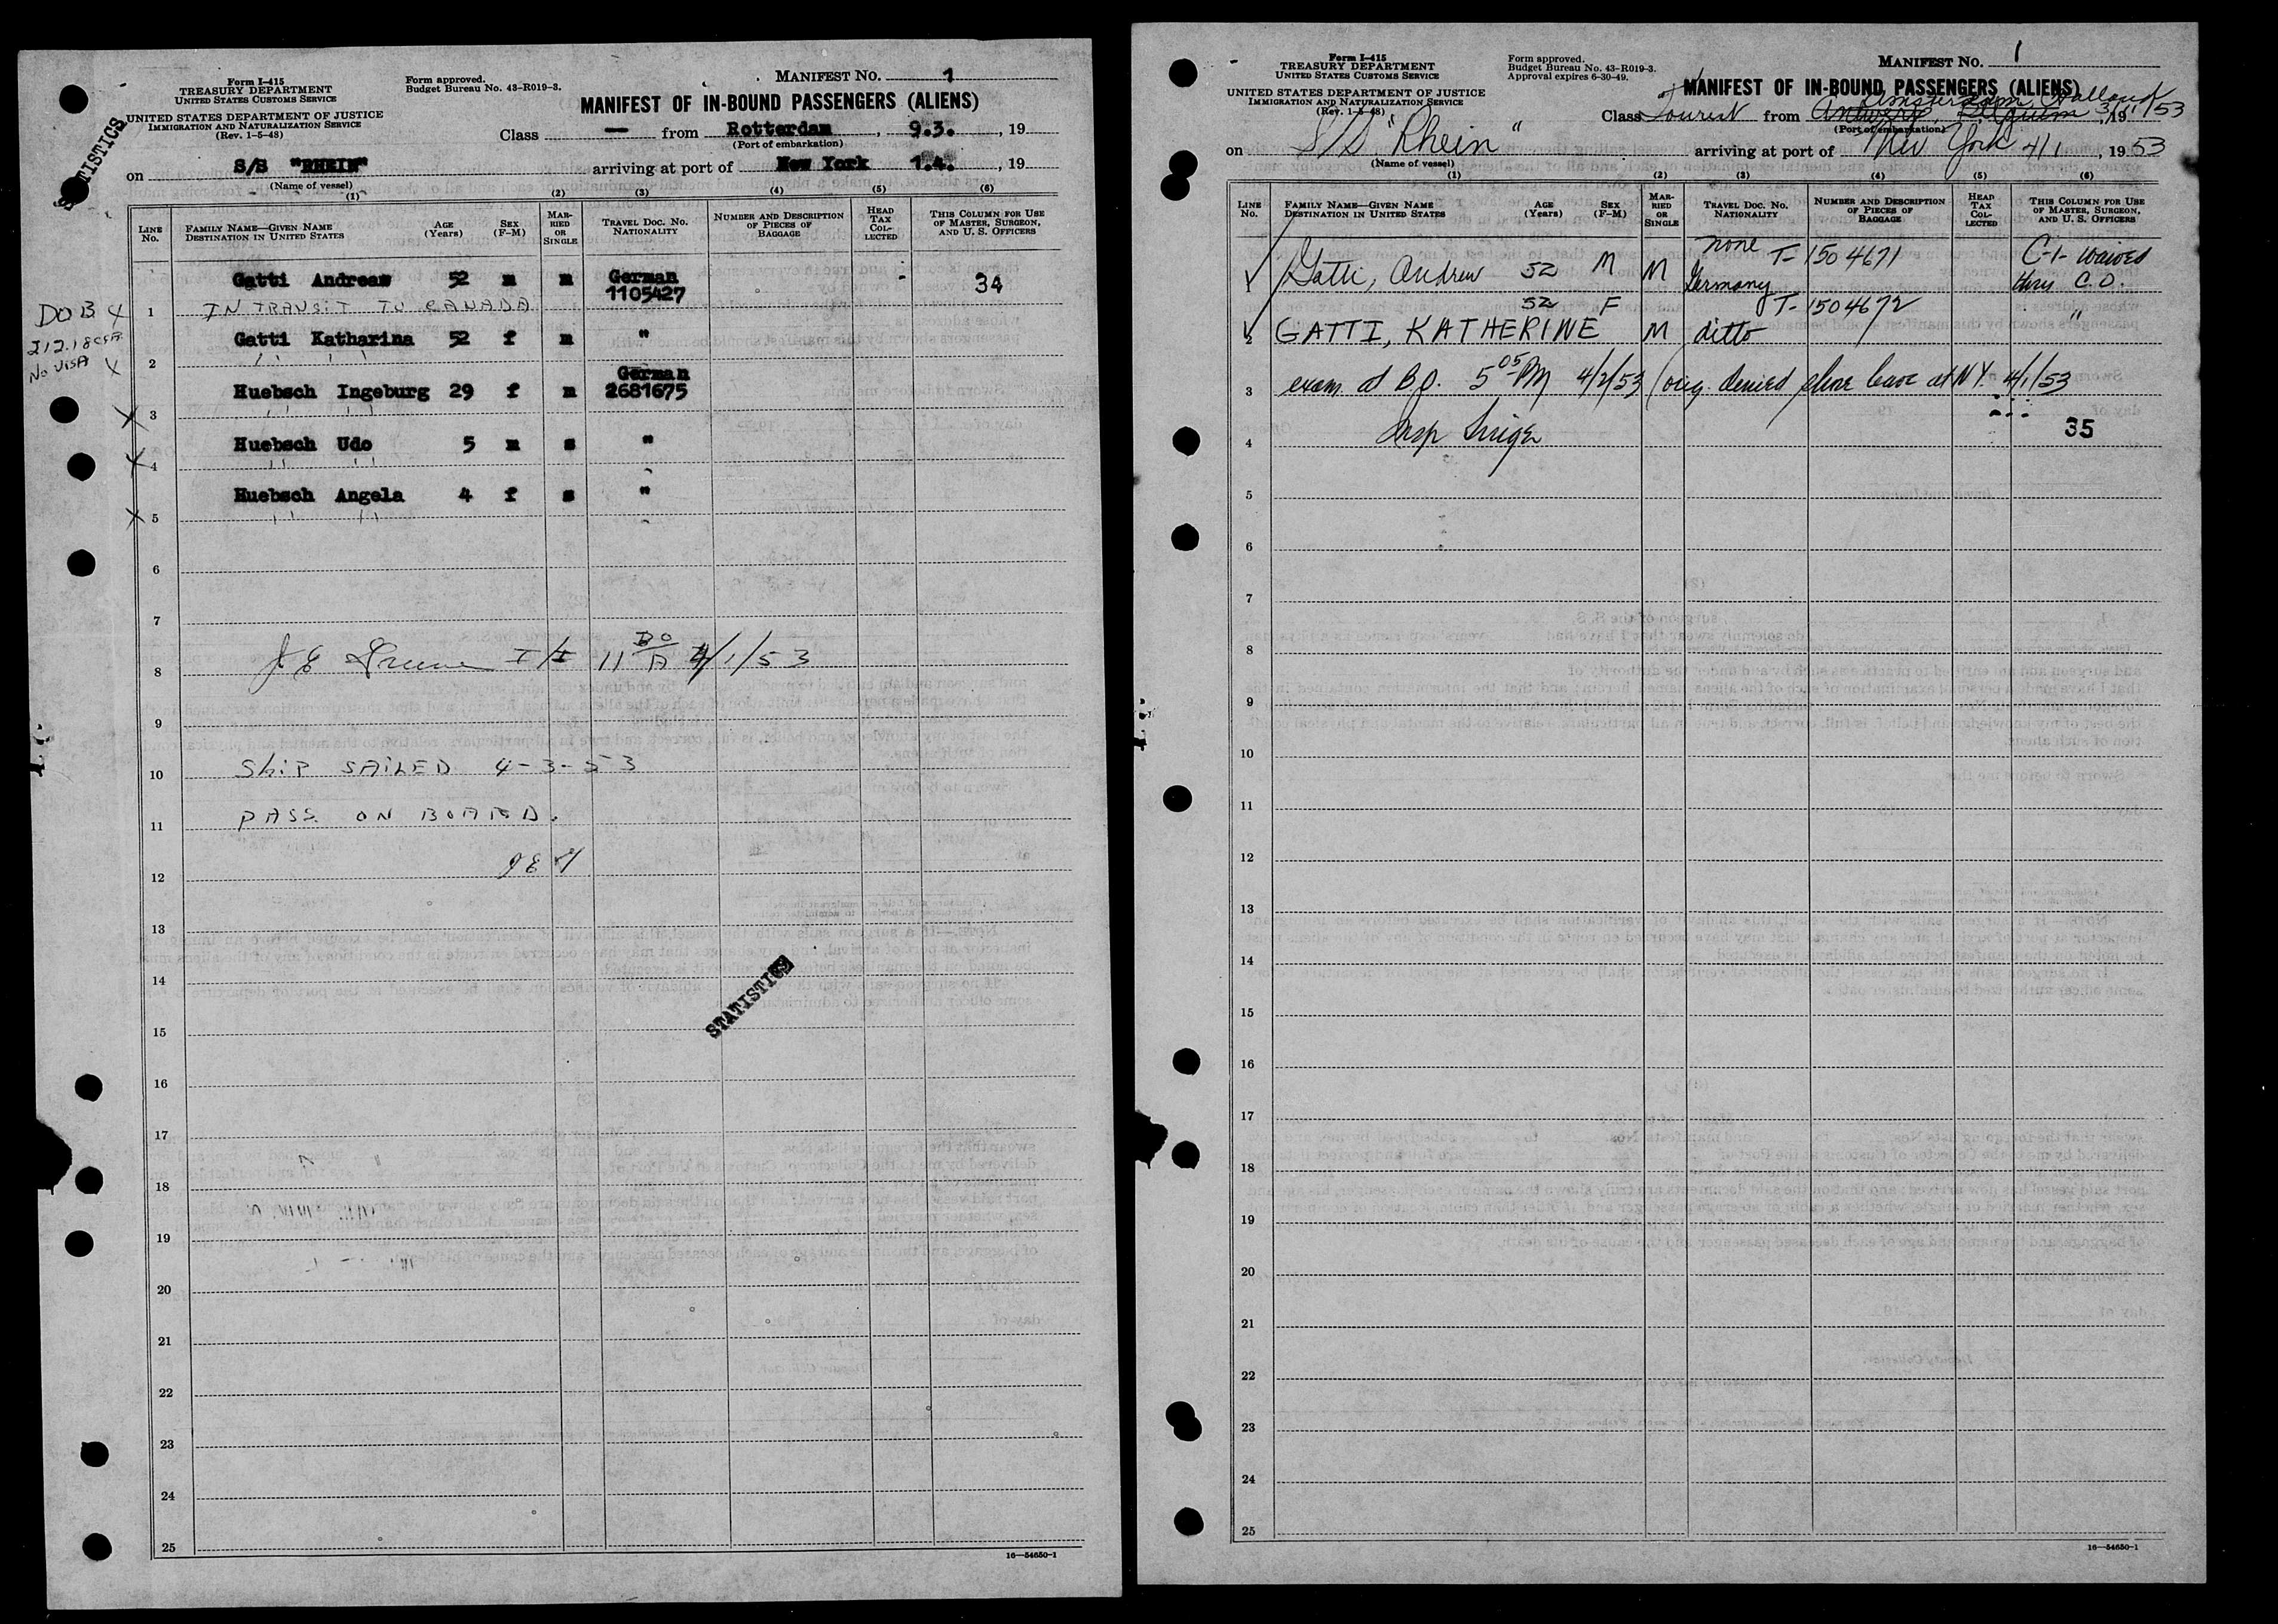 Form I-415
TREASURY DEPARTMENT
UNITED STATES CUSTOMS SERVICE
UNITED STATES DEPARTMENT OF JUSTICE
IMMIGRATION AND NATURALIZATION SERVICE
(Rev. 1-5-48)
Form approved.
Budget Bureau No. 43-R019-3.
MANIFEST No. 1
MANIFEST OF IN-BOUND PASSENGERS (ALIENS)
STATISTICS
Class — from Rotterdam, 9.3., 19
(Port of embarkation)
on S/S "RHEIN" arriving at port of New York 1.4., 19
(Name of vessel)
(1) (2) (3) (4) (5) (6)
LINE No. FAMILY NAME—GIVEN NAME DESTINATION IN UNITED STATES AGE (Years) SEX (F-M) MARRIED OR SINGLE TRAVEL DOC. No. NATIONALITY NUMBER AND DESCRIPTION OF PIECES OF BAGGAGE HEAD TAX COLLECTED THIS COLUMN FOR USE OF MASTER, SURGEON, AND U. S. OFFICERS
Gatti Andreaw 52 m m German 1105427 34
DOB X 1 IN TRANSIT TO CANADA
212.18
Gatti Katharina 52 f m "
No VISA X 2 " "
Huebsch Ingeburg 29 f m German 2681675
X 3 " "
Huebsch Udo 5 m s "
X 4 " "
Huebsch Angela 4 f s "
X 5 " "
6
7
8 I/I 11 30 A 4/1/53
9
10 SHIP SAILED 4-3-53
11 PASS ON BOARD.
12
13
14
STATISTICS
15
16
17
18
19
20
21
22
23
24
25
16—54650-1
Form I-415
TREASURY DEPARTMENT
UNITED STATES CUSTOMS SERVICE
UNITED STATES DEPARTMENT OF JUSTICE
IMMIGRATION AND NATURALIZATION SERVICE
(Rev. 1-5-48)
Form approved.
Budget Bureau No. 43-R019-3.
Approval expires 6-30-49.
MANIFEST No. 1
MANIFEST OF IN-BOUND PASSENGERS (ALIENS)
Amsterdam Holland
Class Tourist from Antwerp, Belgium 3/11, 1953
(Port of embarkation)
on S/S "Rhein" arriving at port of New York 4/1, 1953
(Name of vessel)
(1) (2) (3) (4) (5) (6)
LINE No. FAMILY NAME—GIVEN NAME DESTINATION IN UNITED STATES AGE (Years) SEX (F-M) MARRIED OR SINGLE TRAVEL DOC. No. NATIONALITY NUMBER AND DESCRIPTION OF PIECES OF BAGGAGE HEAD TAX COLLECTED THIS COLUMN FOR USE OF MASTER, SURGEON, AND U. S. OFFICERS
none T-1504671 C-1- waived
1 Gatti, Andrew 52 M M Germany thru C.O.
52 F T-1504672 "
2 GATTI, KATHERINE M ditto
3 exam. at B.O. 5 05 PM 4/2/53 (orig. denied shore leave at N.Y. 4/1/53
4 Insp 35
5
6
7
8
9
10
11
12
13
14
15
16
17
18
19
20
21
22
23
24
25
16—54650-1